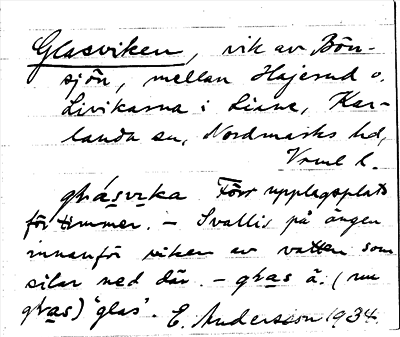 Glasviken, vik av Bön-
sjön, mellan Hajerud o.
Livikarna i Liane, Kar-
landa sn, Nordmarks hd,
Vrml l.
glasvika Förr upplagsplats
för timmer. – Svallis på ängen
innanför viken av vatten som
silar ned där. – glas ä. (nu
glas) "glas". E. Andersson 1934.